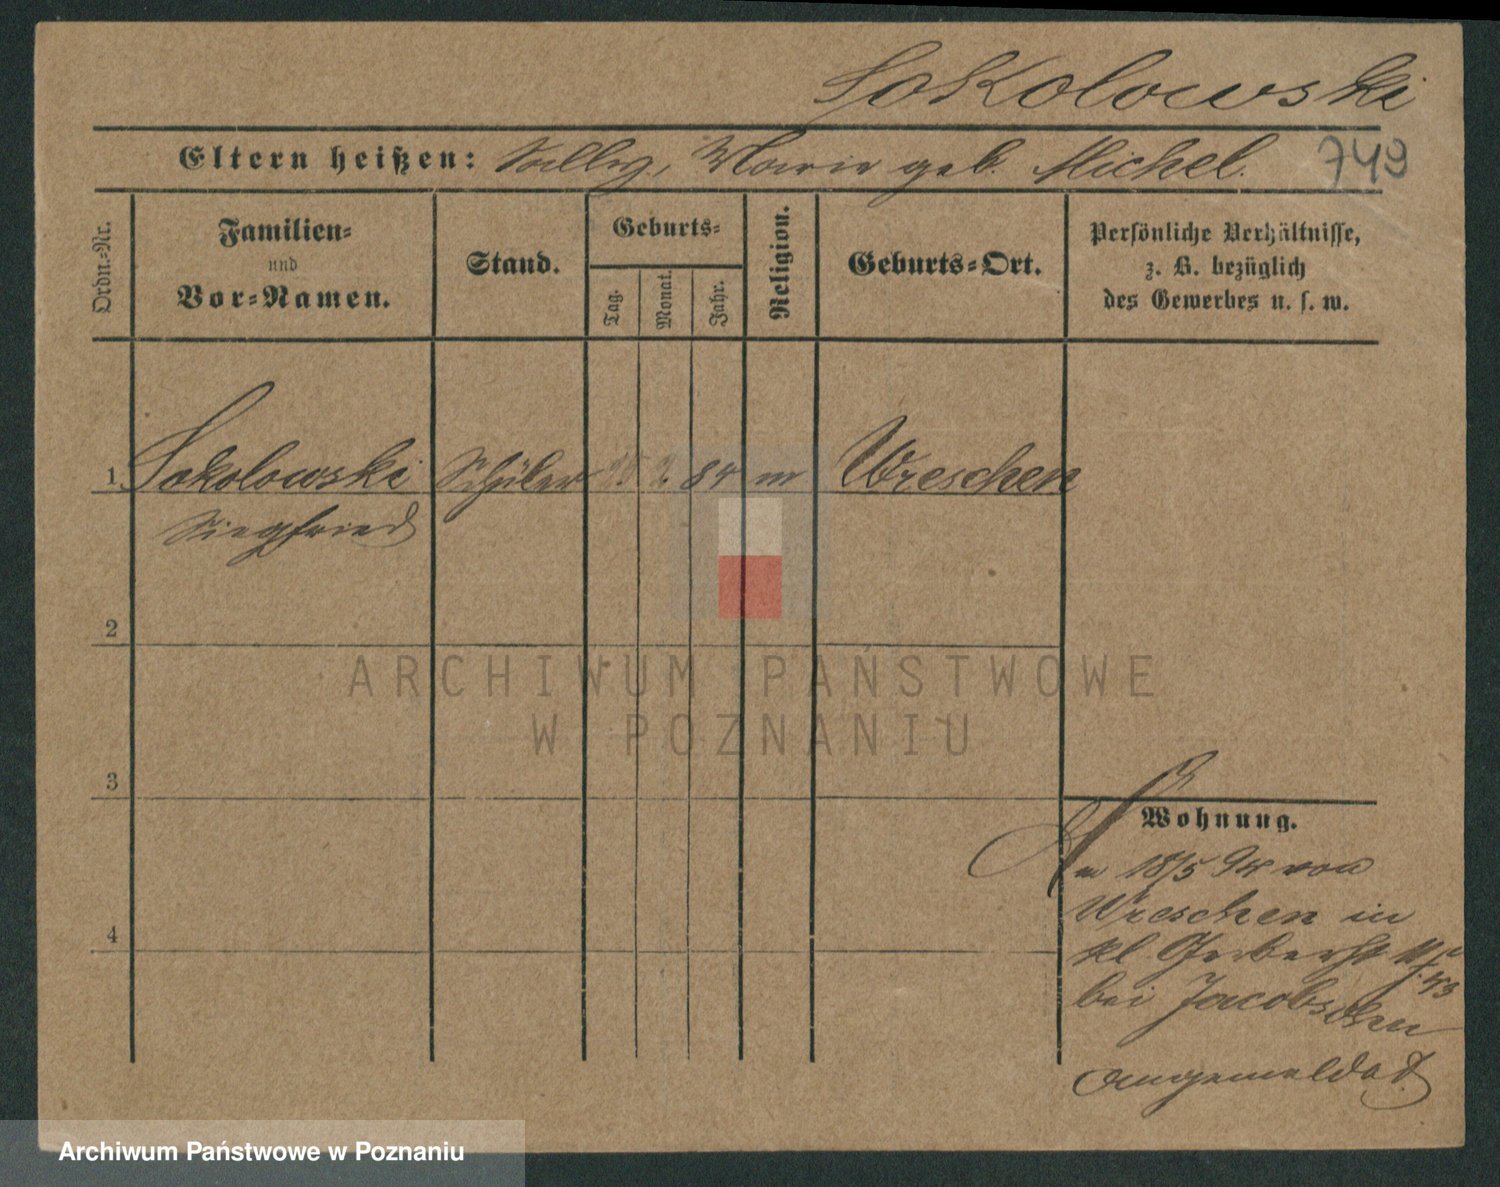 Sokolowski
Eltern heißen: Sally, Marie geb. Michel.
749
Ordn.-Nr.
Familien-
und
Vor-Namen.
Stand.
Geburts-
Tag.
Monat.
Jahr.
Religion.
Geburts-Ort.
Persönliche Verhältnisse,
z. B. bezüglich
des Gewerbes u. s. w.
1 Sokolowski Schüler 2 84 m Wreschen
Siegfried
2
ARCHIWUM PAŃSTWOWE
W POZNANIU
3
Wohnung.
Am 18/5 94 von
4
Wreschen in
kl. Gerberst
bei Jacobsohn
angemeldet
Archiwum Państwowe w Poznaniu